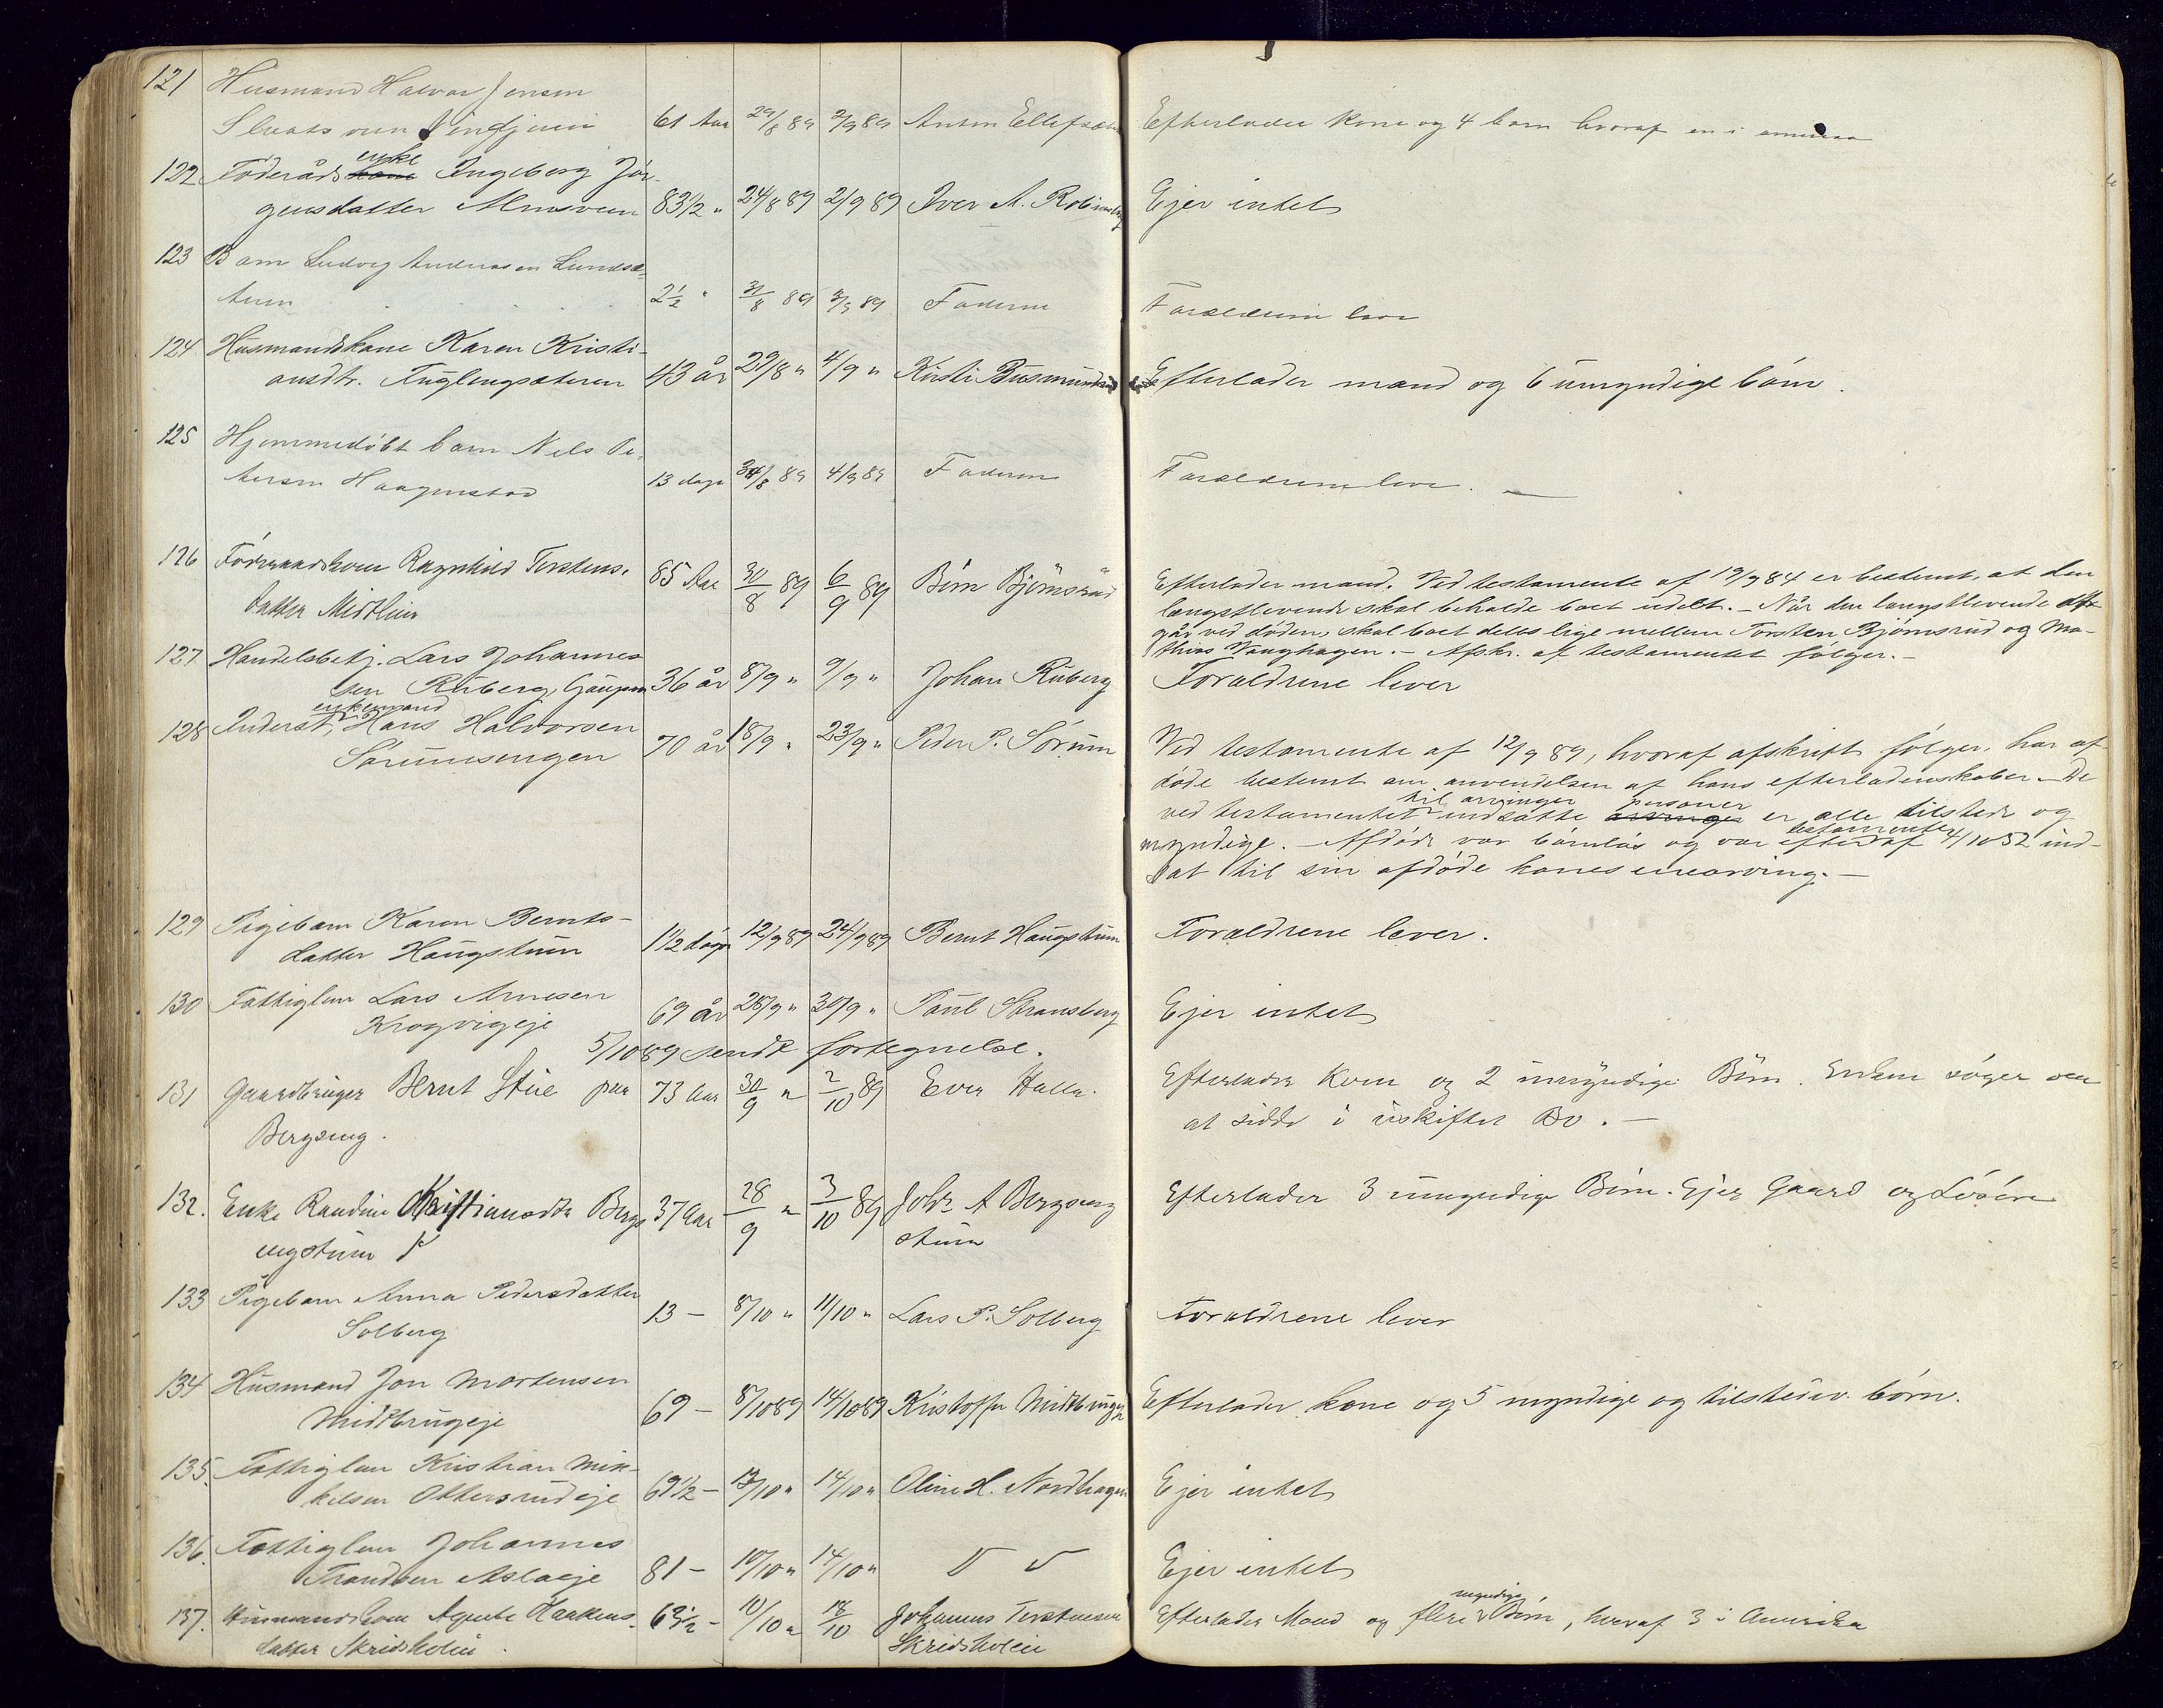 121 Husmand Halvor Jensen
61 Aar 29/8 89 2/9 89 Anton Ellefsæter Efterlader Kone og 4 barn hvoraf en i
122 Føderåds enke Ingeborg Jør-
gensdatter 83 1/2 " 24/8 89 2/9 89 Iver A. Ejer intet
123 Barn Ludvig Andreasen Lundsæ-
2 1/2 " 31/8 89 3/9 89 Faderen Forældrene leve
124 Husmandskone Karen Kristi-
ansdtr. Fuglengsæteren 43 år 29/8 " 4/9 " Kirsti Efterlader mand og 6 umyndige børn.
125 Hjemmedøbt barn Nels Pe-
tersen Haagenstad 13 dage 31/8 89 4/9 89 Faderen Forældrene leve. —
126 Føderaadskone Ragnhild Torstens-
datter Midtlien 85 Aar 30/8 89 6/9 89 Børn Bjørnsrud
Efterlader mand. Ved testamente af 19/9 84 er bestemt, at den
længstlevende skal beholde boet udelt. — Når den længstlevende
går ved døden, skal boet deles lige mellem Torsten Bjørnsrud og Ma-
thias Vanghagen. — Afskr. af testamentet følger. —
127 Handelsbetj. Lars Johannes-
sen Ruberg, Gausum 36 år 8/9 " 9/9 " Johan Ruberg Forældrene lever
128 Inderst, enkemand Hans Halvorsen
Sørumsengen 70 år 18/9 " 23/9 " Peder P. Sørum
Ved testamente af 12/9 89, hvoraf afskrift følger, har af-
døde bestemt om anvendelsen af hans efterladenskaber. — De
ved testamentet til arvinger indsatte personer er alle tilstede og
myndige. — Afdøde var barnløs og var efter testamente af 4/10 52 ind-
sat til sin afdøde kones enearving. —
129 Pigebarn Karen Bernts-
datter Haugstuen 1 1/2 døgn 12/9 89 24/9 89 Bernt Haugstuen Forældrene lever.
130 Fattiglem Lars Arnesen
Krogvigeje 69 år 28/9 " 30/9 " Paul Stransberg Ejer intet
5/10 89 sendt fortegnelse.
131 Gaardbruger Bernt Stue paa 73 Aar 30/9 " 2/10 89 Even Halla. Efterlader Kone og 2 umyndige Børn. Enken søger om
Bergseng. at sidde i uskiftet Bo. —
132. Enke Randine Kristiansdtr Bergs- 37 Aar 28/9 " 3/10 89 Johs A Bergseng Efterlader 3 umyndige Børn. Ejer Gaard og Løsøre
engstuen stuen
133 Pigebarn Anna Pedersdatter
Solberg 13 — 8/10 " 11/10 " Lars P. Solberg Forældrene lever
134 Husmand Jon Mortensen
Midtbrugeje 69 — 8/10 89 14/10 89 Kristoffer Midtbrugeje Efterlader kone og 5 myndige og tilstedev. børn.
135. Fattiglem Kristian Mik-
kelsen Ottersrudeje 69 1/2 — 12/10 " 14/10 " Oline H. Nordhagen Ejer intet
136. Fattiglem Johannes
Trondsen Aslaeje 81 — 10/10 " 14/10 " Ejer intet
137. Husmandskone Agnete Haakens- 63 1/2 — 10/10 " 18/10 Johannes Torstensen Efterlader Mand og flere myndige Børn, hvoraf 3 i Amerika
datter Skridsholen. Skridsholen